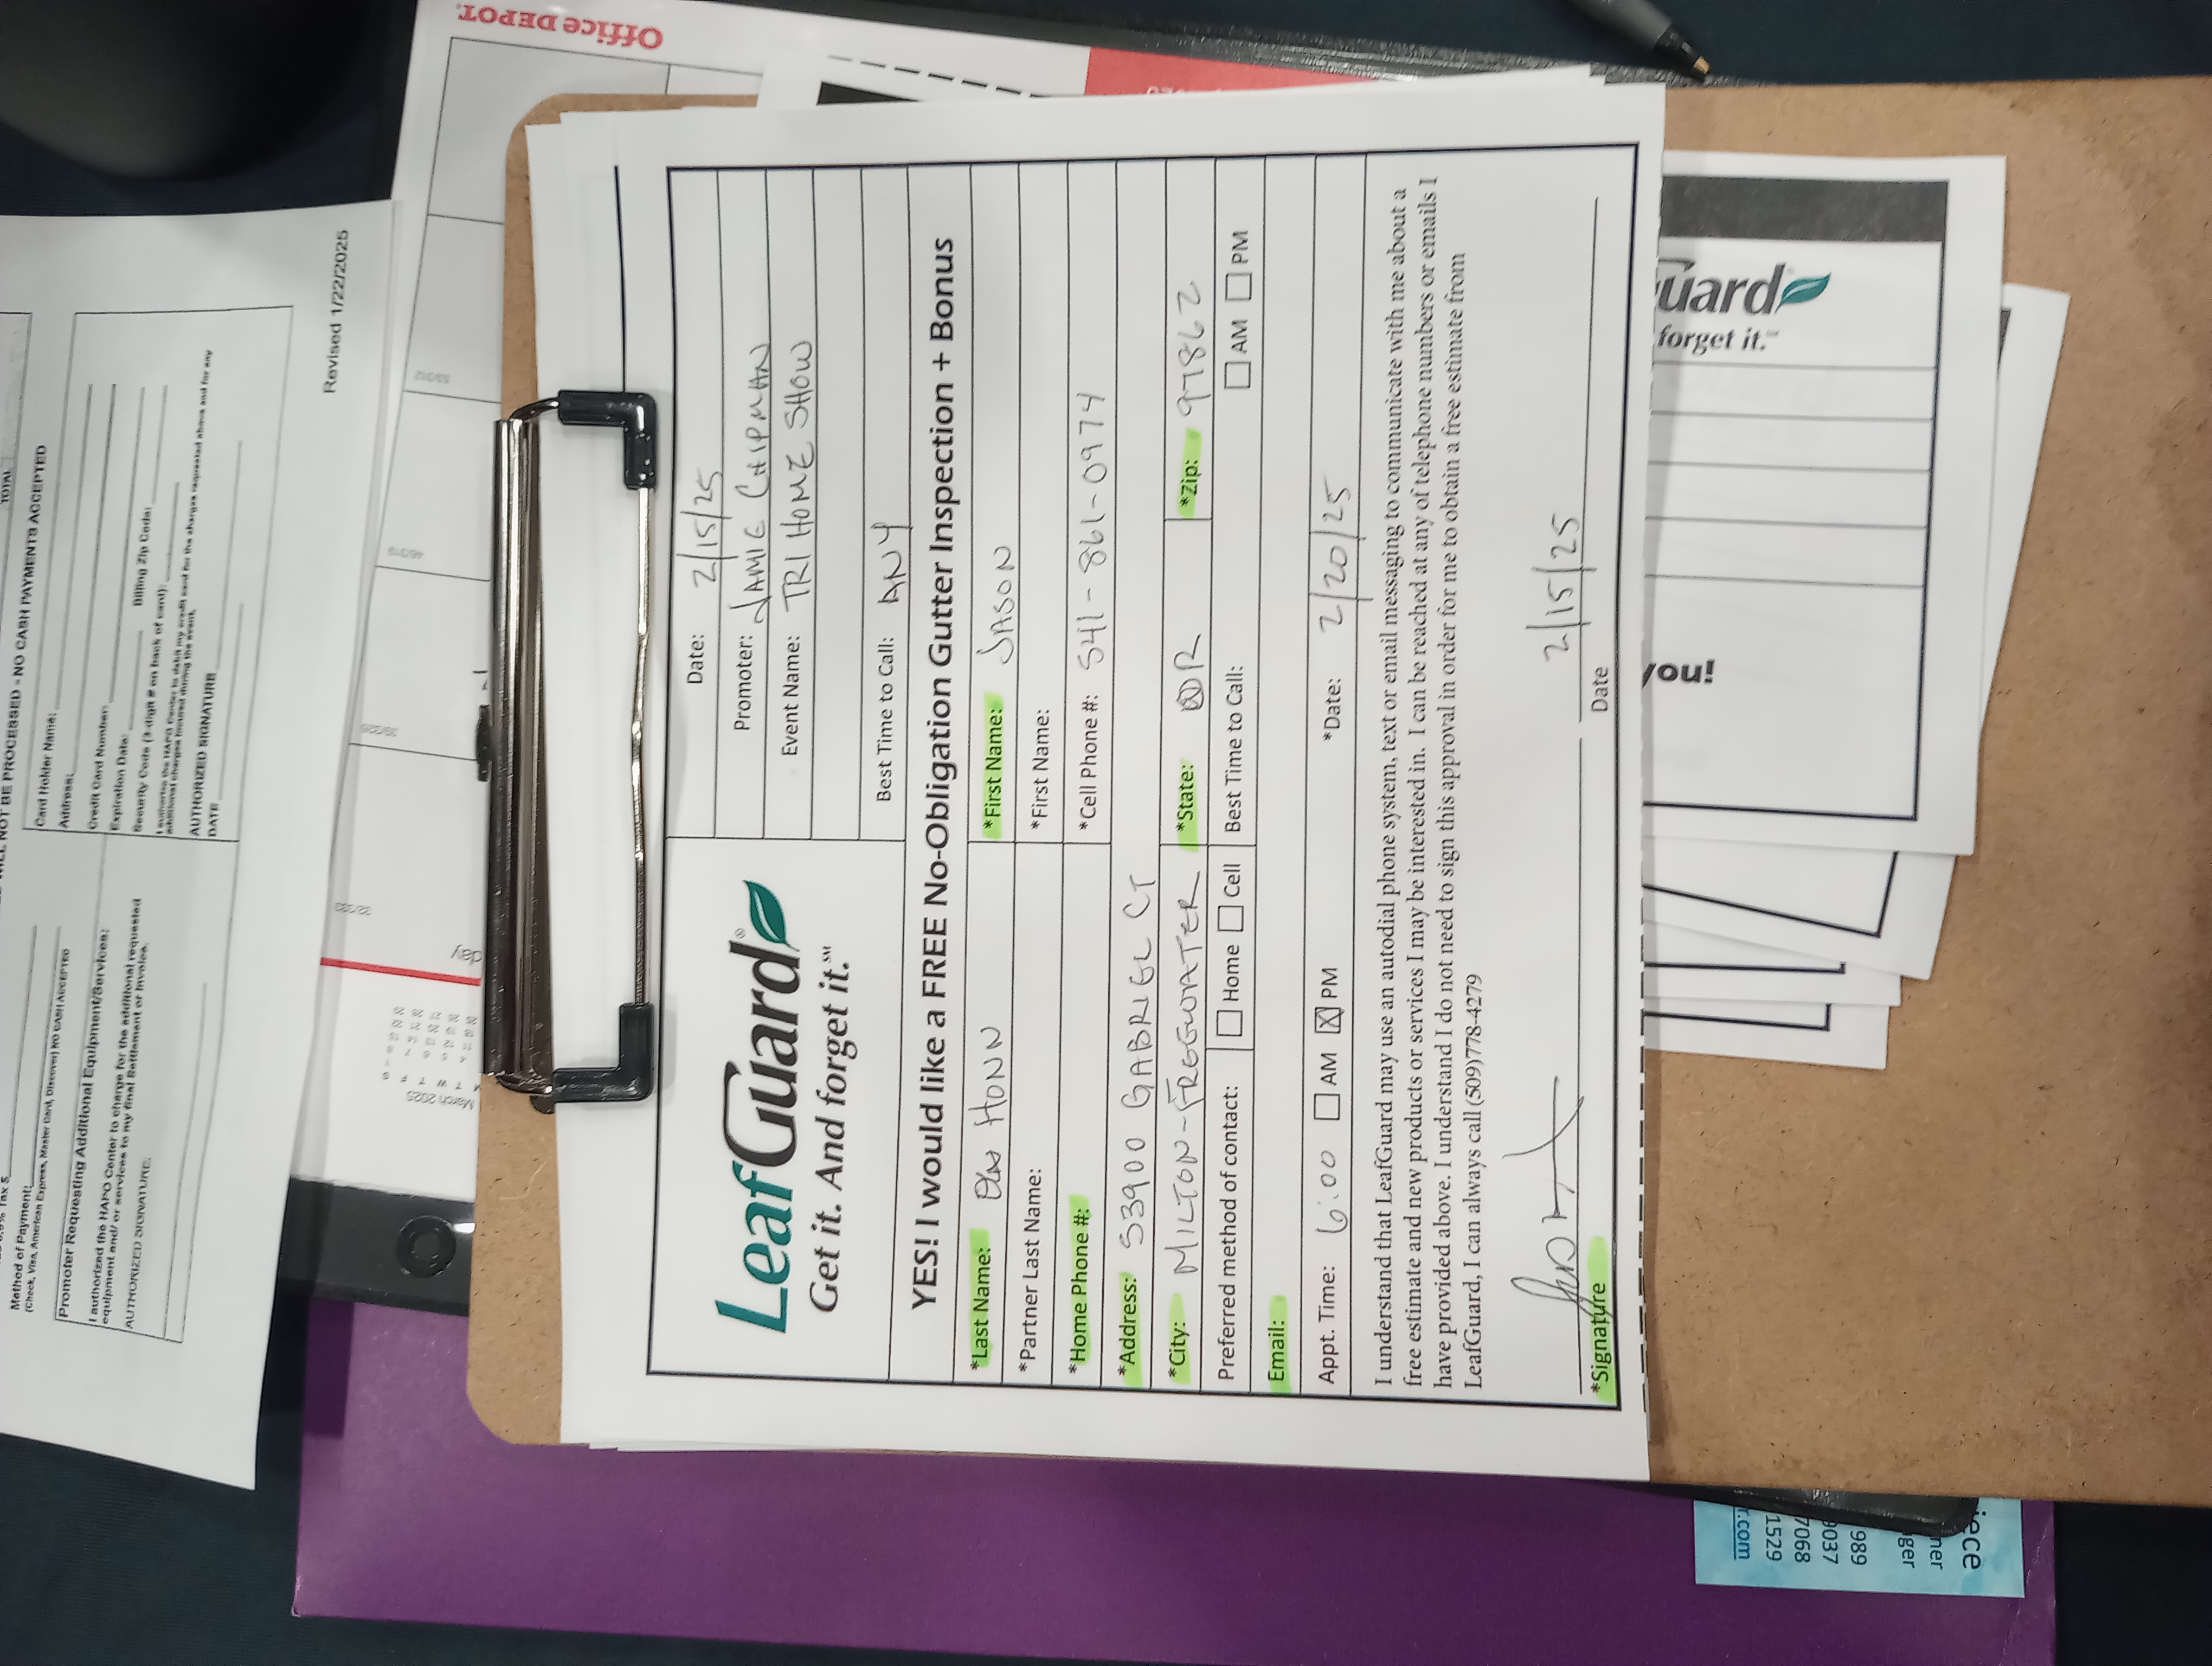 Tax $
TOTAL
NOT BE PROCESSED - NO CASH PAYMENTS ACCEPTED
Method of Payment:
(Check, Visa, American Express, Master Card, Discover) NO CASH ACCEPTED
Promoter Requesting Additional Equipment/Services:
I authorized the HAPO Center to charge for the additional requested
equipment and/ or services to my final Settlement or Invoice.
AUTHORIZED SIGNATURE:
Card Holder Name:
Address:
Credit Card Number:
Expiration Date: Billing Zip Code:
Security Code (3 digit # on back of card):
I authorize the HAPO Center to debit my credit card for the charges requested above and for any
additional charges incurred during the event.
AUTHORIZED SIGNATURE
DATE
Revised 1/22/2025
March 2025
day
32/333
39/326
46/319
53/312
Office DEPOT
LeafGuard®
Get it. And forget it.℠
Date: 2/15/25
Promoter: JAMIE CHIPMAN
Event Name: TRI HOME SHOW
Best Time to Call: ANY
YES! I would like a FREE No-Obligation Gutter Inspection + Bonus
*Last Name: HONN *First Name: JASON
*Partner Last Name: *First Name:
*Home Phone #: *Cell Phone #: 541-861-0974
*Address: 53900 GABRIEL CT
*City: MILTON-FREEWATER *State: OR *Zip: 97862
Preferred method of contact: Home Cell Best Time to Call: AM PM
Email:
Appt. Time: 6:00 AM X PM *Date: 2/20/25
I understand that LeafGuard may use an autodial phone system, text or email messaging to communicate with me about a
free estimate and new products or services I may be interested in. I can be reached at any of telephone numbers or emails I
have provided above. I understand I do not need to sign this approval in order for me to obtain a free estimate from
LeafGuard, I can always call (509)778-4279
2/15/25
*Signature Date
you!
Guard
forget it.
r.com
1529
7068
9037
989
ger
ner
iece